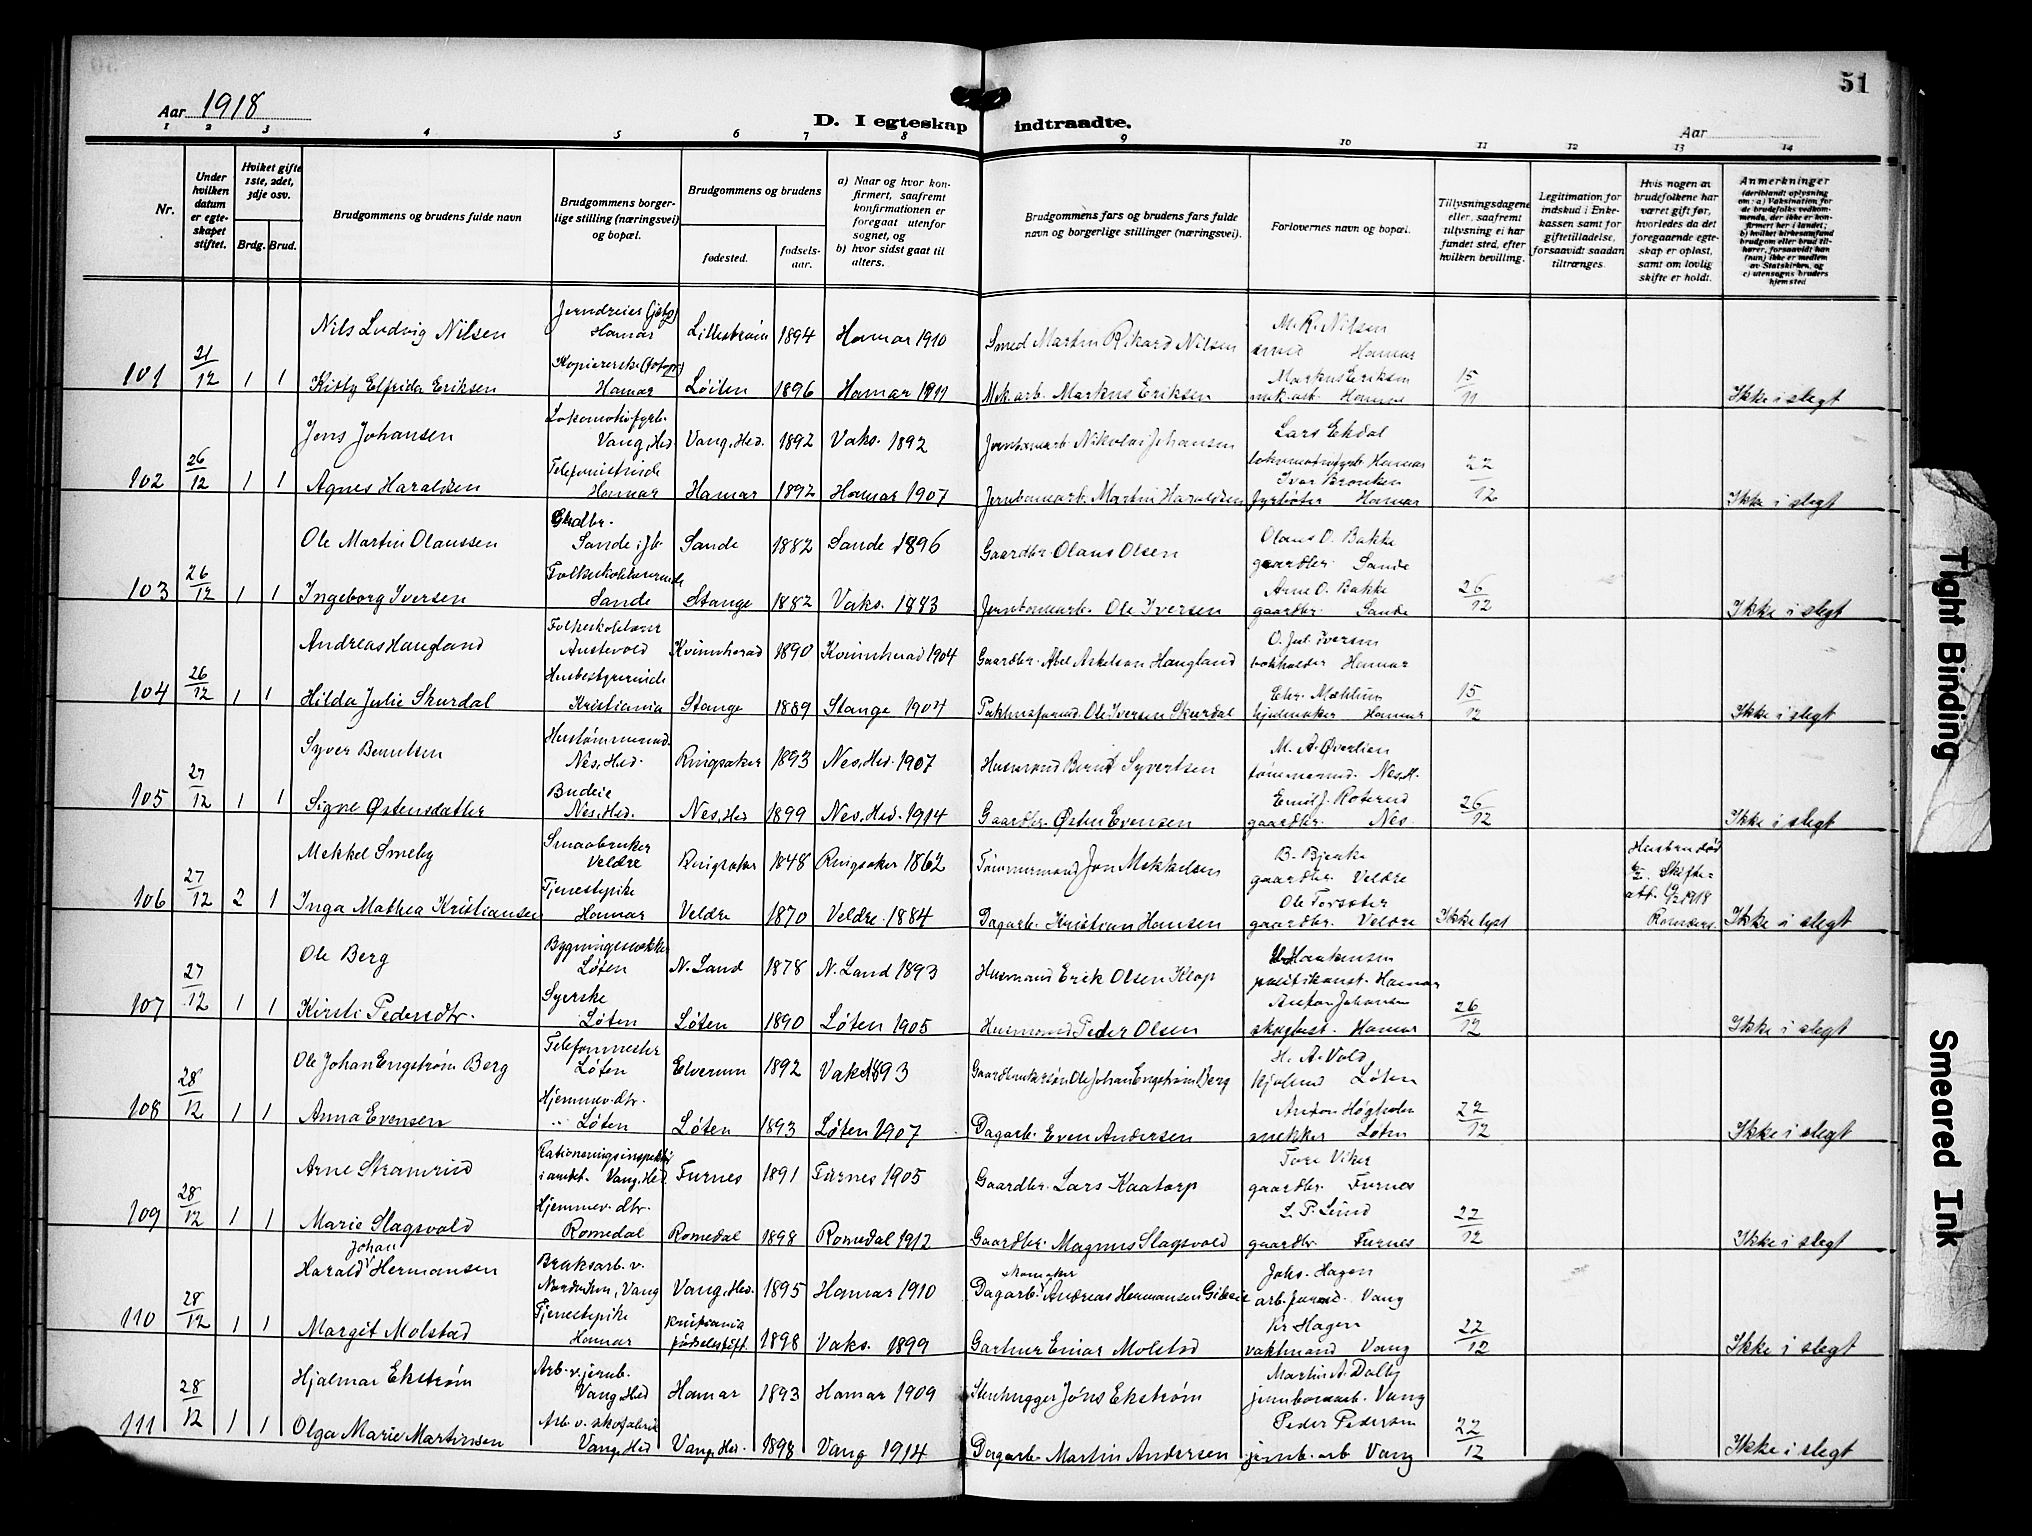 51
Aar 1918
D. I egteskap indtraadte.
Aar
1 2 3 4 5 6 7 8 9 10 11 12 13 14
Nr.
Under hvilken datum er egteskapet stiftet.
Hvilket gifte 1ste, 2det, 3dje osv.
Brdg. Brud.
Brudgommens og brudens fulde navn
Brudgommens borgerlige stilling (næringsvei) og bopæl.
Brudgommens og brudens
fødested.
fødselsaar.
a) Naar og hvor konfirmert, saafremt konfirmationen er foregaat utenfor sognet, og
b) hvor sidst gaat til alters.
Brudgommens fars og brudens fars fulde navn og borgerlige stillinger (næringsvei).
Forlovernes navn og bopæl.
Tillysningsdagene eller, saafremt tillysning ei har fundet sted, efter hvilken bevilling.
Legitimation for indskud i Enkekassen samt for giftetilladelse, forsaavidt saadan tiltrænges.
Hvis nogen av brudefolkene har været gift før, hvorledes da det foregaaende egteskap er opløst, samt om lovlig skifte er holdt.
Anmerkninger
Nils Ludvig Nilsen Hamar Lillestrøm 1894 Hamar 1910 Smed Martin Rikard Nilsen M. R. Nilsen
smed Hamar
101 21/12 1 1 Kitty Elfrida Eriksen Hamar Løiten 1896 Hamar 1911 Mek.arb. Markus Eriksen Markus Eriksen 15/11 Ikke i slegt
mek.arb. Hamar
Jens Johansen Vang, Hed. Vang, Hed. 1892 Vaks. 1892 Jernbanearb. Nikolai Johansen Lars Ekdal
Hamar
102 26/12 1 1 Agnes Haraldsen Telefonistinde Hamar Hamar 1892 Hamar 1907 Jernbanearb. Martin Haraldsen Ivar Bronken 22/12 Ikke i slegt
fyrbøter Hamar
Ole Martin Olaussen Grdbr. Sande i Jb. Sande 1882 Sande 1896 Gaardbr. Olaus Olsen Olaus O. Bakke
gaardbr. Sande
103 26/12 1 1 Ingeborg Iversen Folkeskolelærerinde Sande Stange 1882 Vaks. 1883 Jernbanearb. Ole Iversen Arne O. Bakke 26/12 Ikke i slegt
gaardbr. Sande
Andreas Haugland Folkeskolelærer Austevold Kvinnherad 1890 Kvinnherad 1904 Gaardbr. Abel Askelsen Haugland O. Jul. Iversen
bokholder Hamar
104 26/12 1 1 Hilda Julie Skurdal Husbestyrerinde Kristiania Stange 1889 Stange 1904 Pakhusformd. Ole Iversen Skurdal Chr. Mæhlum 15/12 Ikke i slegt
hjulmaker Hamar
Syver Berntsen Nes, Hed. Ringsaker 1893 Nes, Hed. 1907 Husmand Bernt Syvertsen M. A. Øverlien
tømmermd. Nes, H.
105 27/12 1 1 Signe Østensdatter Budeie Nes, Hed. Nes, Hed 1899 Nes, Hed. 1914 Gaardbr. Østen Evensen Emil J. Roterud 26/12 Ikke i slegt
gaardbr. Nes.
Mekkel Smeby Smaabruker Veldre Ringsaker 1848 Ringsaker 1862 Tømmermand Jon Mekkelsen B. Bjerke
gaardbr. Veldre
106 27/12 2 1 Inga Mathea Kristiansen Tjenestepike Hamar Veldre 1870 Veldre 1884 Dagarb. Kristian Hansen Ole Torsæter Ikke lyst Ikke i slegt
gaardbr. Veldre
Ole Berg Løten N. Land 1878 N. Land 1893 Husmand Erik Olsen Klop Haakensen
politikonst. Hamar
107 27/12 1 1 Kirsti Pedersdtr. Syerske Løten Løten 1890 Løten 1905 Husmand Peder Olsen Anton Johansen 26/12 Ikke i slegt
Hamar
Ole Johan Engstrøm Berg Telefonmester Løten Elverum 1892 Vaks. 1893 Gaardbrukersøn Ole Johan Engstrøm Berg H. A. Vold
Løten
108 28/12 1 1 Anna Evensen Hjemmev. dtr. Løten Løten 1893 Løten 1907 Dagarb. Even Andersen Anton Høgholm 22/12 Ikke i slegt
snekker Løten
Arne Stramrud Rationeringsinspektør i amtet. Vang, Hed. Furnes 1891 Furnes 1905 Gaardbr. Lars Kaatorp Tore Viker
gaardbr. Furnes
109 28/12 1 1 Marie Slagsvold Hjemmev. dtr. Romedal Romedal 1898 Romedal 1912 Gaardbr. Magnus Slagsvold L. P. Lund 22/12 Ikke i slegt
gaardbr. Furnes
Harald Johan Hermansen Bruksarb. v. Vang Vang, Hed. 1895 Hamar 1910 Dagarb. skomaker Andreas Hermansen Johs. Hagen
arb.formd. Vang
110 28/12 1 1 Margit Molstad Tjenestepike Hamar Kristiania fødselsstift. 1898 Vaks. 1899 Gartner Einar Molstad Kr Hagen 22/12 Ikke i slegt
vaktmand Vang
Hjalmar Ekstrøm Arb. v. jernb. Vang, Hed Hamar 1893 Hamar 1909 Stenhugger Jöns Ekstrøm Martin A. Dalby
jernbanearb. Vang
111 28/12 1 1 Olga Marie Martinsen Arb. v. skofabrik Vang, Hed Vang, Hed. 1898 Vang 1914 Dagarb. Martin Andersen Peder Pedersen 22/12 Ikke i slegt
jernb. arb Vang
Tight Binding
Smeared Ink